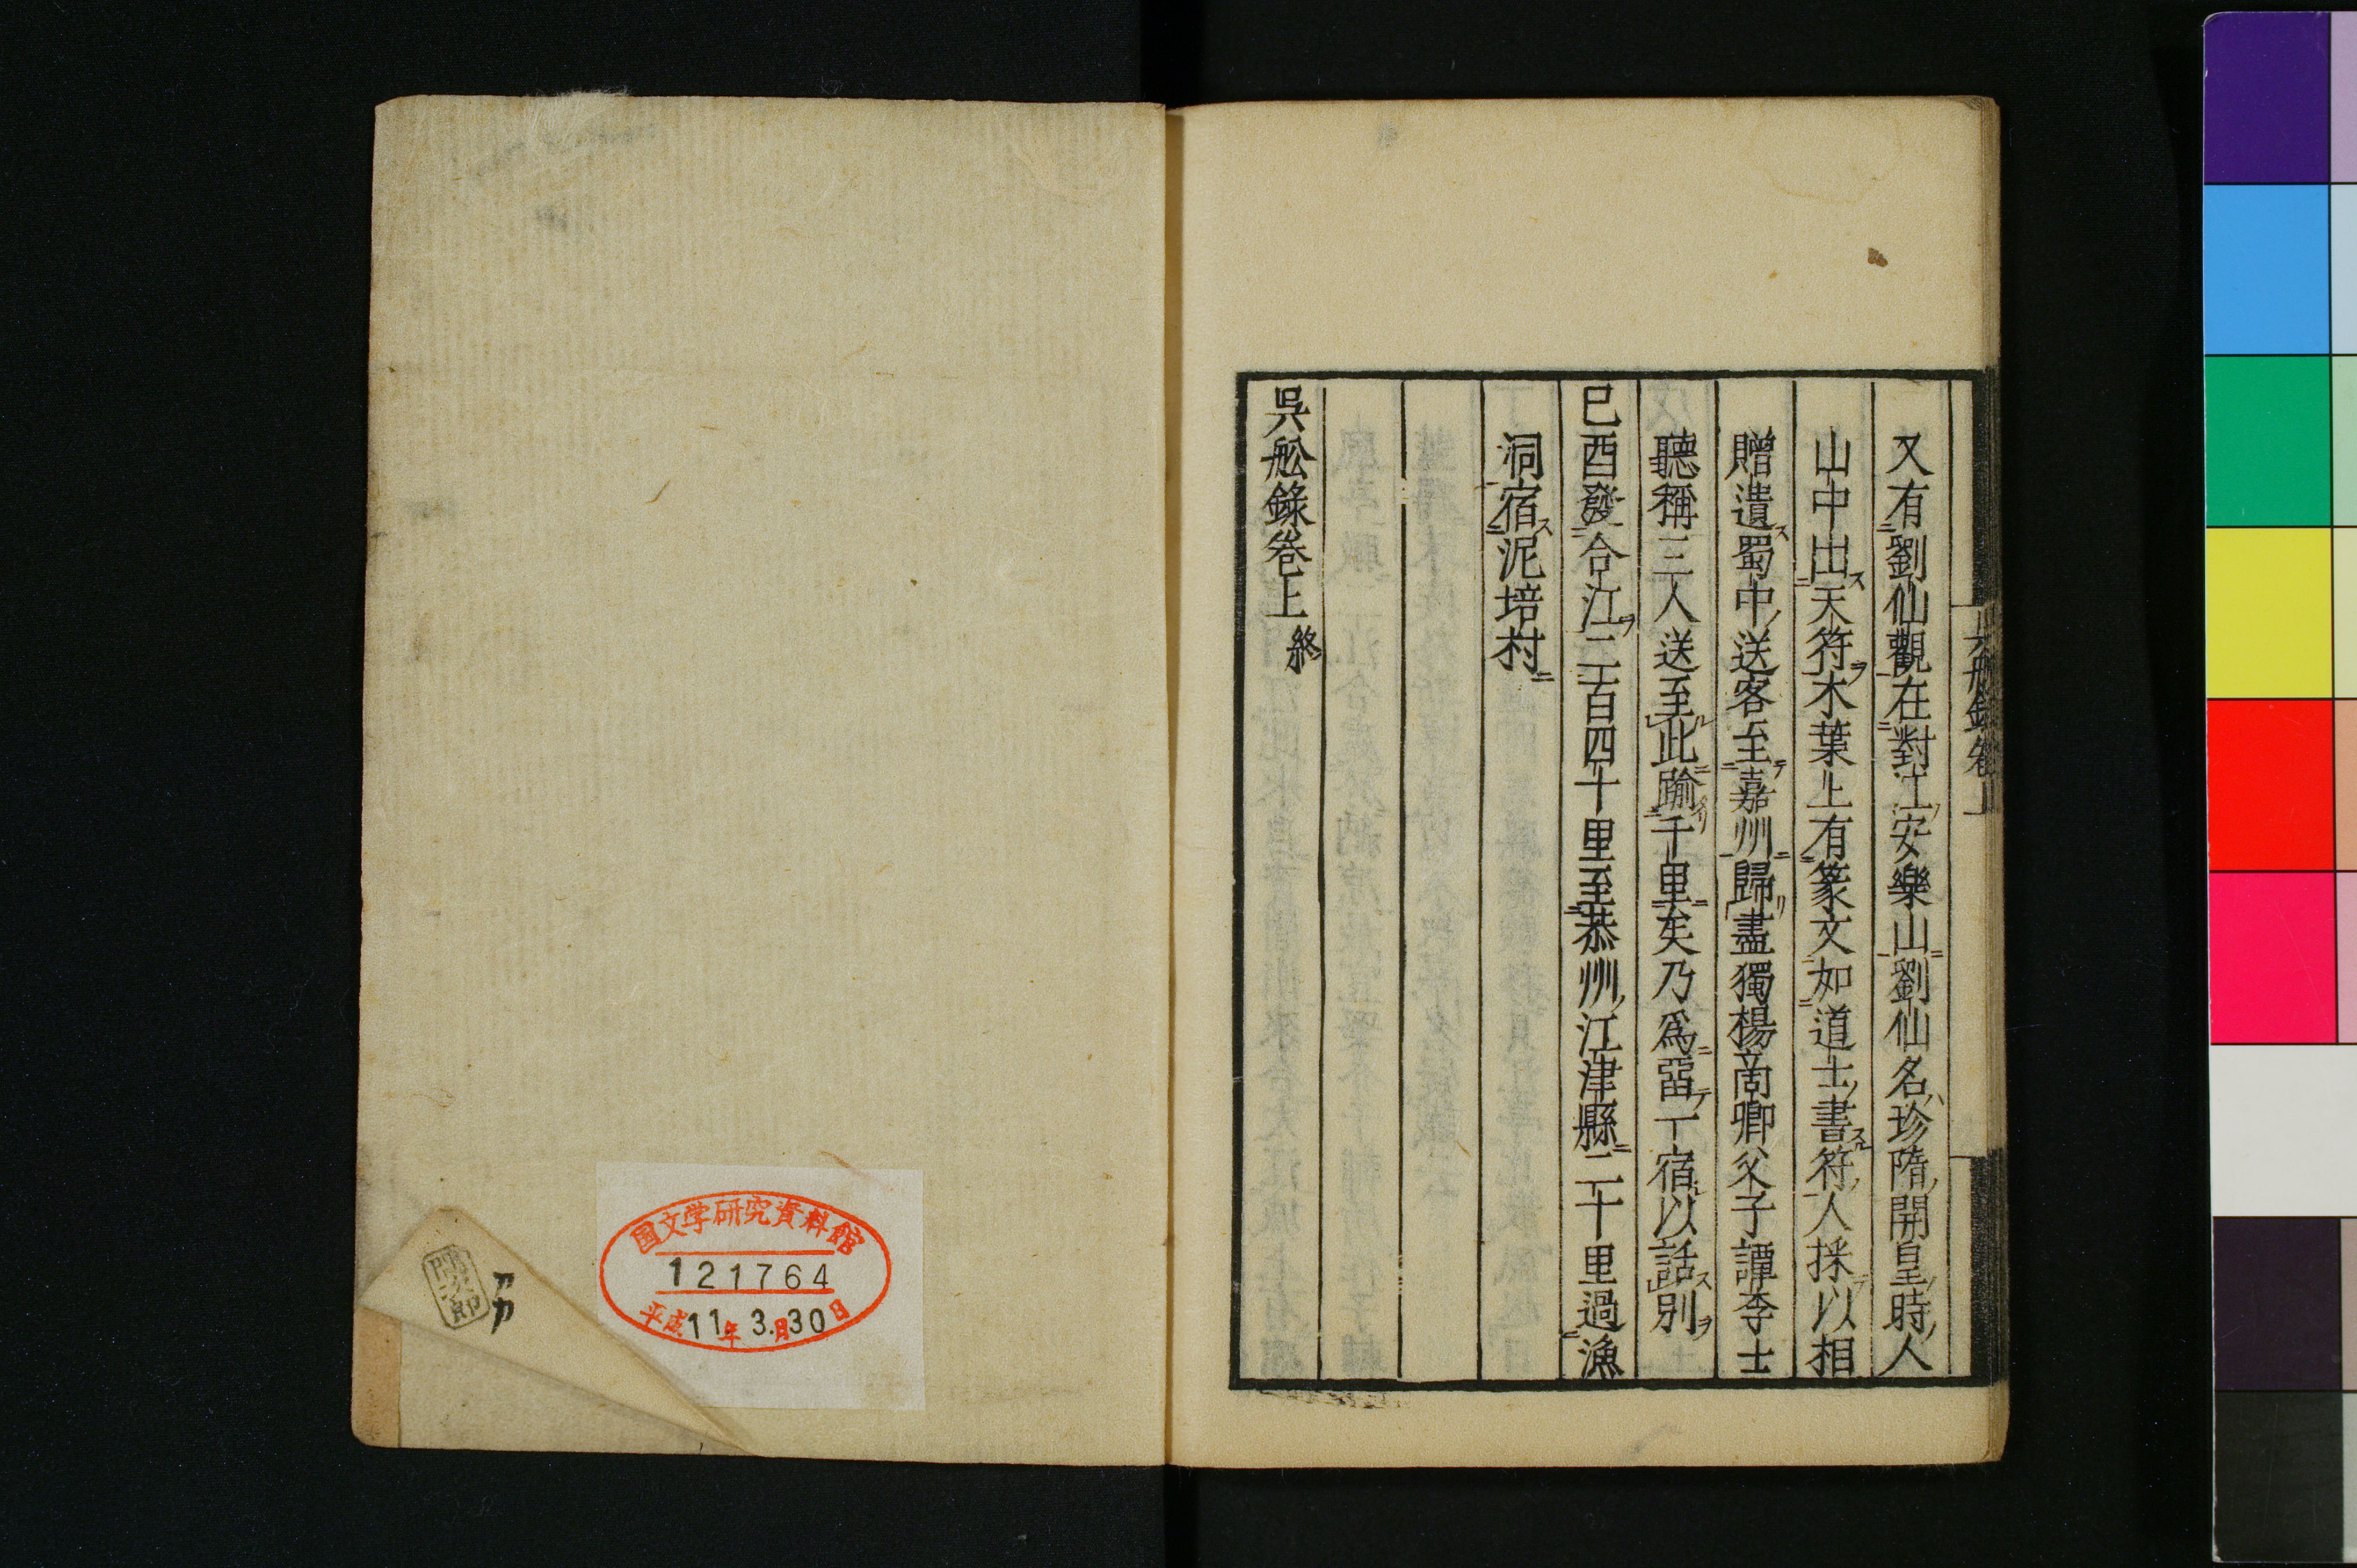 又有劉仙觀在對江安樂山劉仙名珍隋開皇時人
山中出天符木葉上有篆文如道士書符人採以相
贈遺蜀中送客至嘉州歸盡獨楊商卿父子譚季士
聽稱三人送至此踰千里矣乃爲畱一宿以話別
己酉發合江二百四十里至恭州江津縣二十里過漁
洞宿泥培村
吳舩錄卷上 終
国文学研究資料館
121764
平成11年3月30日